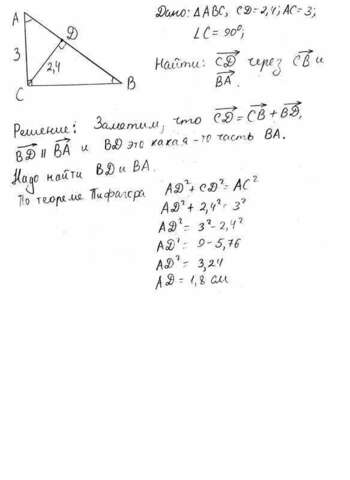 Дано: ΔABC, CD=2,4; AC=3;
∠C = 90°;
Найти: CD через CB и
BA.
A
D
3
2,4
C
B
Решение: Заметим, что CD = CB + BD,
BD ∥ BA и BD это какая-то часть BA.
Надо найти BD и BA.
По теореме Пифагора AD² + CD² = AC²
AD² + 2,4² = 3²
AD² = 3² - 2,4²
AD² = 9 - 5,76
AD² = 3,24
AD = 1,8 см